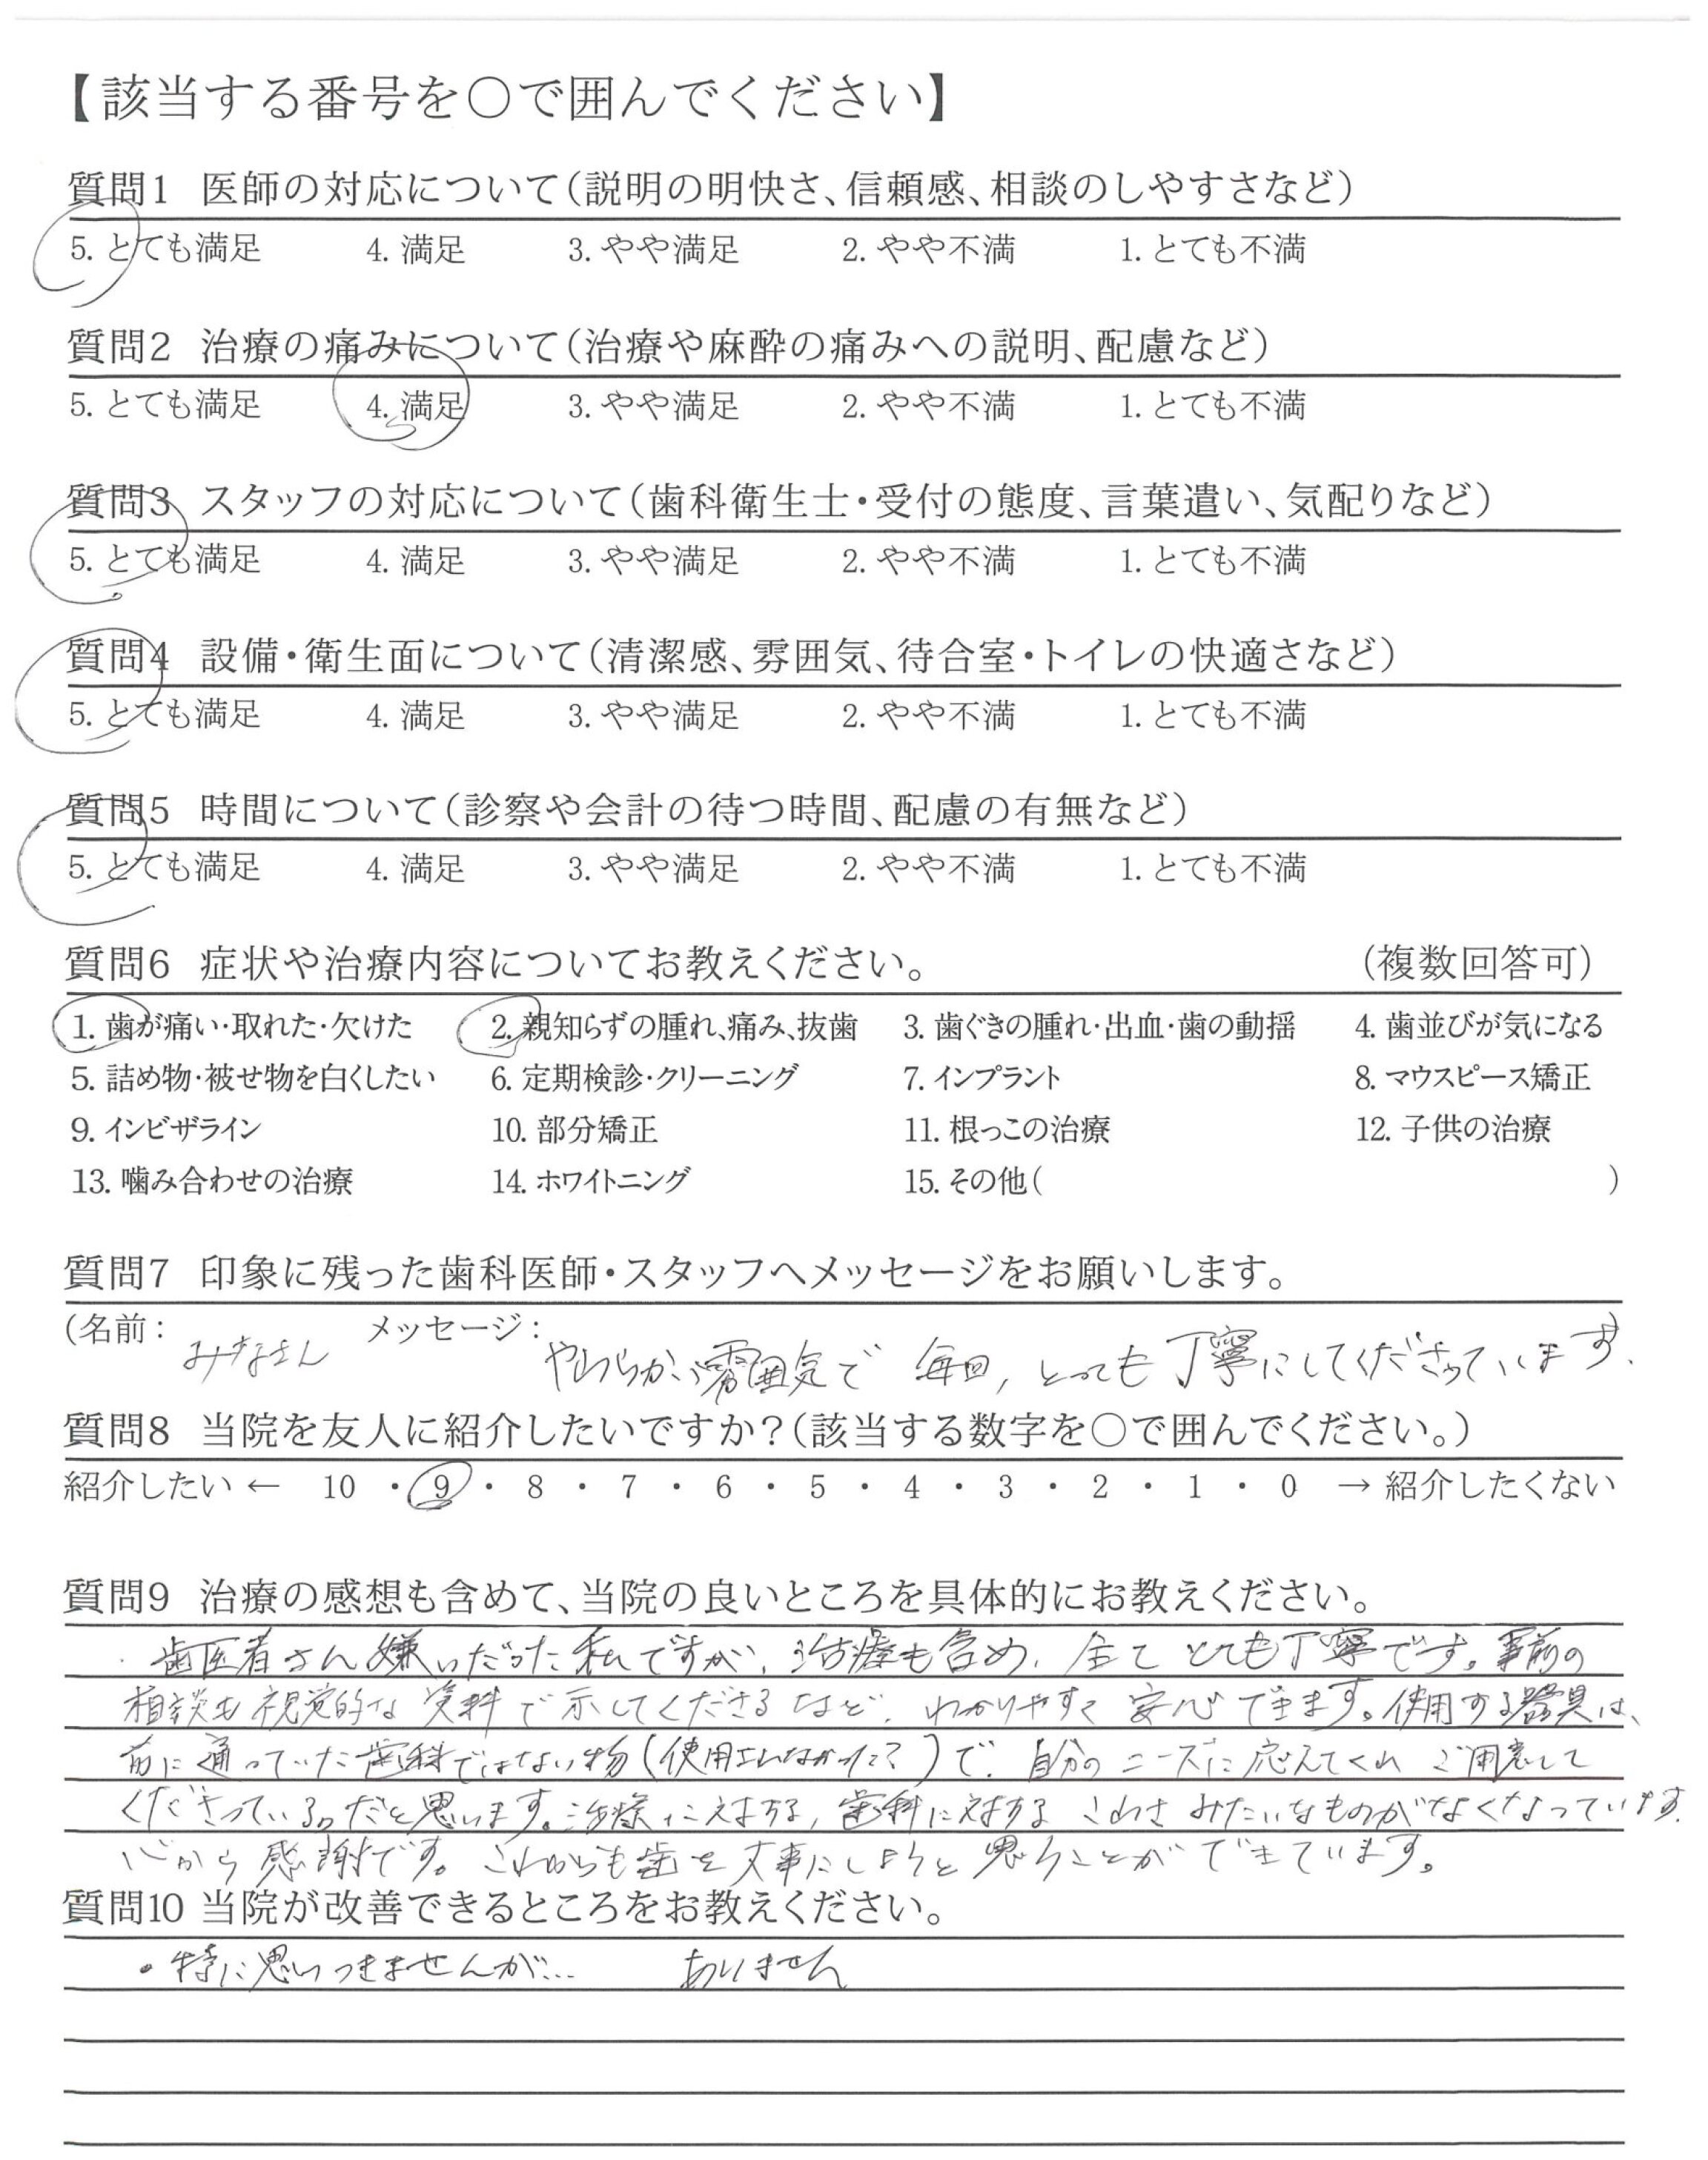 【該当する番号を○で囲んでください】
質問1 医師の対応について(説明の明快さ、信頼感、相談のしやすさなど)
5. とても満足 4. 満足 3. やや満足 2. やや不満 1. とても不満
質問2 治療の痛みについて(治療や麻酔の痛みへの説明、配慮など)
5. とても満足 4. 満足 3. やや満足 2. やや不満 1. とても不満
質問3 スタッフの対応について(歯科衛生士・受付の態度、言葉遣い、気配りなど)
5. とても満足 4. 満足 3. やや満足 2. やや不満 1. とても不満
質問4 設備・衛生面について(清潔感、雰囲気、待合室・トイレの快適さなど)
5. とても満足 4. 満足 3. やや満足 2. やや不満 1. とても不満
質問5 時間について(診察や会計の待つ時間、配慮の有無など)
5. とても満足 4. 満足 3. やや満足 2. やや不満 1. とても不満
質問6 症状や治療内容についてお教えください。 (複数回答可)
1. 歯が痛い・取れた・欠けた 2. 親知らずの腫れ、痛み、抜歯 3. 歯ぐきの腫れ・出血・歯の動揺 4. 歯並びが気になる
5. 詰め物・被せ物を白くしたい 6. 定期検診・クリーニング 7. インプラント 8. マウスピース矯正
9. インビザライン 10. 部分矯正 11. 根っこの治療 12. 子供の治療
13. 噛み合わせの治療 14. ホワイトニング 15. その他( )
質問7 印象に残った歯科医師・スタッフへメッセージをお願いします。
(名前: みなさん メッセージ: やわらかい雰囲気で 毎回, とっても丁寧にしてくださっています.
質問8 当院を友人に紹介したいですか?(該当する数字を○で囲んでください。)
紹介したい ← 10 ・ 9 ・ 8 ・ 7 ・ 6 ・ 5 ・ 4 ・ 3 ・ 2 ・ 1 ・ 0 → 紹介したくない
質問9 治療の感想も含めて、当院の良いところを具体的にお教えください。
・歯医者さん嫌いだった私ですが、治療も含め、全て とても丁寧です。事前の
相談も視覚的な資料で示してくださるなど、わかりやすく安心できます。使用する器具は、
前に通っていた歯科ではない物(使用されなかった?)で、自分のニーズに応えてくれ ご用意して
くださっているのだと思います。治療に対する, 歯科に対する こわさ みたいなものがなくなっています.
心から感謝です。これからも歯を大事にしようと思うことができています。
質問10 当院が改善できるところをお教えください。
・特に思いつきませんが… ありません